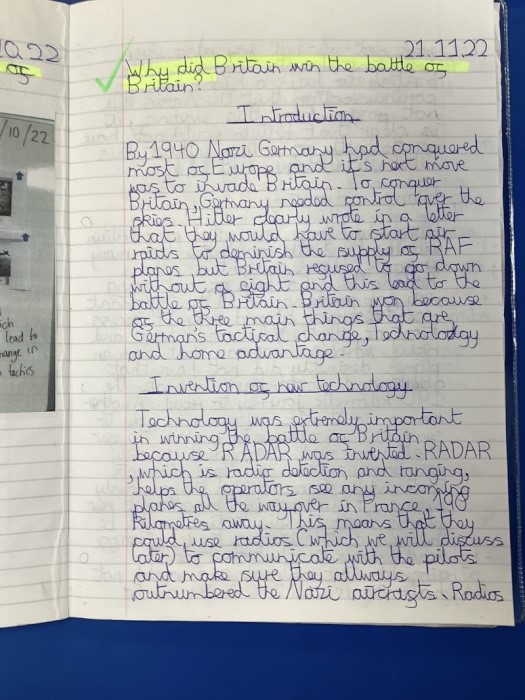 0.22
/10/22
ich
lead to
ange in
tactics
21.11.22
Why did Britain win the battle of
Britain?
Introduction
By 1940 Nazi Germany had conquered
most of Europe and it's next move
was to invade Britain. To conquer
Britain, Germany needed control over the
skies. Hitler clearly wrote in a letter
that they would have to start air
raids to deminish the supply of RAF
planes, but Britain refused to go down
without a fight and this lead to the
battle of Britain. Britain won because
of the three main things that are,
German's tactical change, Technology
and home advantage.
Invention of new technology
Technology was extremely important
in winning the battle of Britain
because RADAR was invented. RADAR
, which is radio detection and ranging,
helps the operators see any incoming
planes all the way over in France, 90
Kilometres away. This means that they
could use radios (which we will discuss
later) to communicate with the pilots
and make sure they allways
outnumbered the Nazi aircrafts. Radios